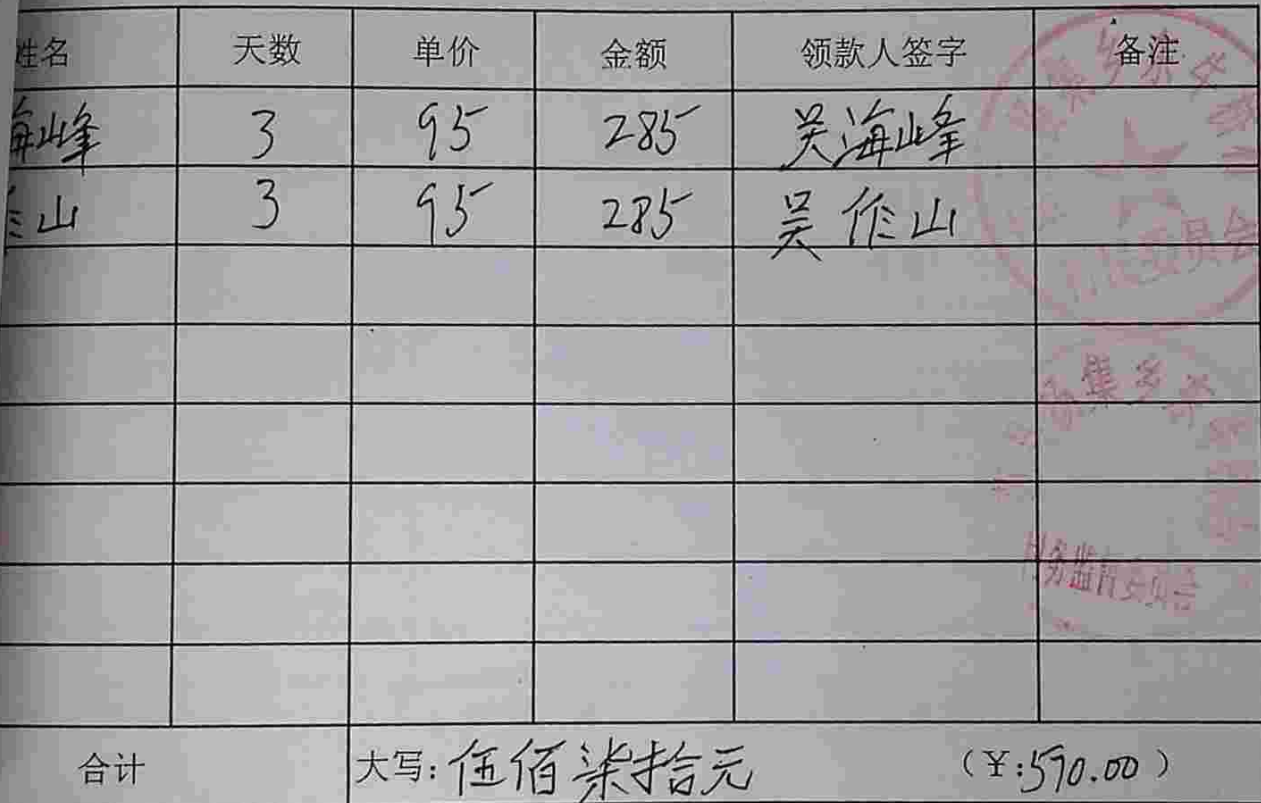 姓名 天数 单价 金额 领款人签字 备注
海峰 3 95 285 吴海峰
山 3 95 285 吴作山
合计 大写:伍佰柒拾元 (¥:570.00)
集乡
委员会
集乡
村务监督委员会